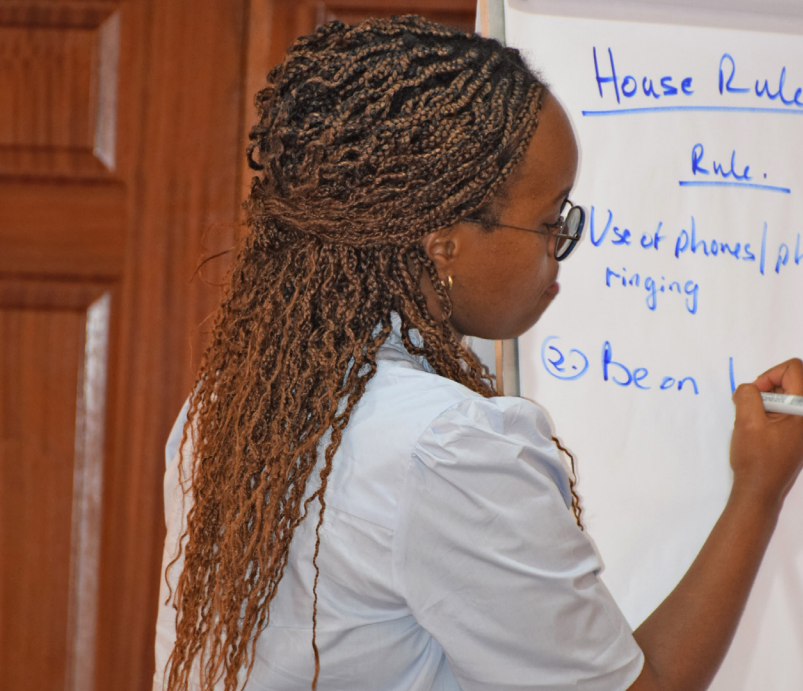 House Rule
Rule.
Use of phones/ ph
ringing
2. Be on